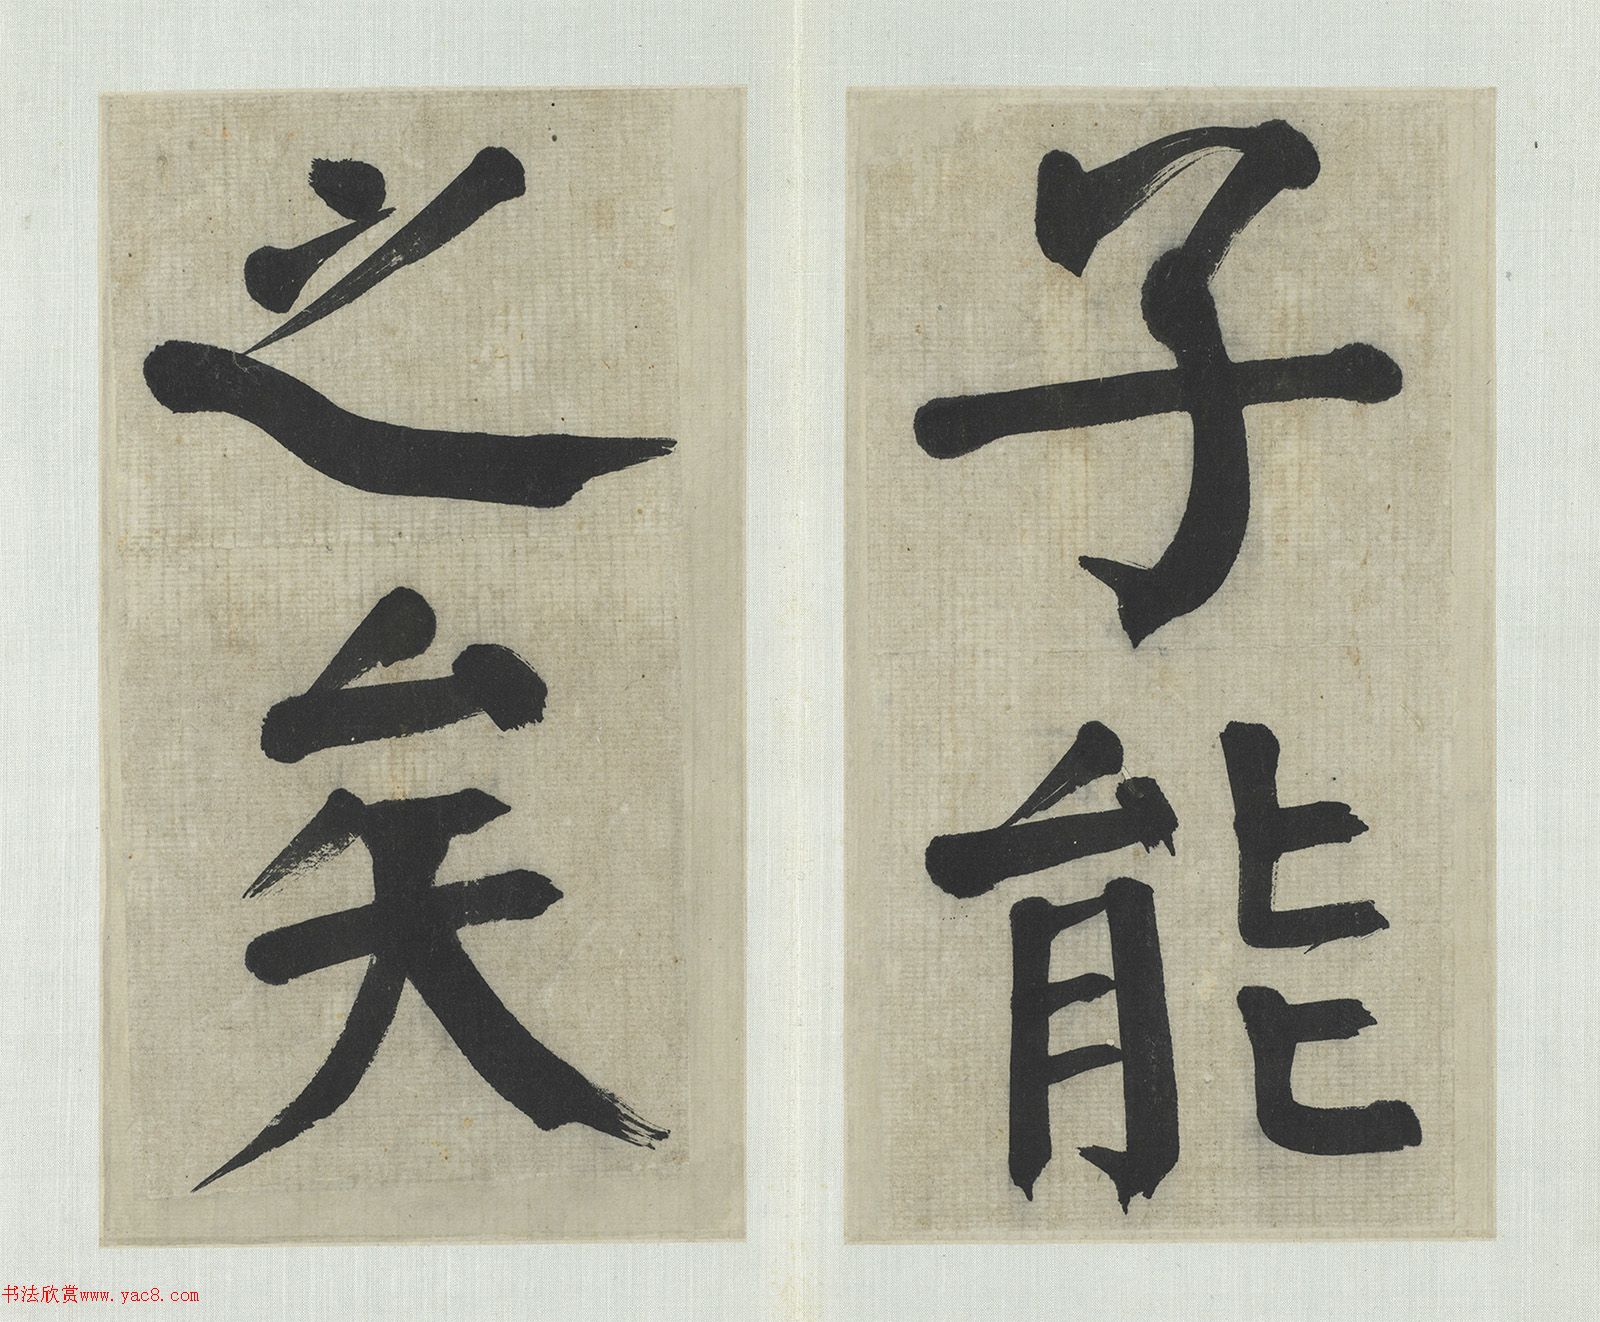 子能
之矣
书法欣赏www.yac8.com